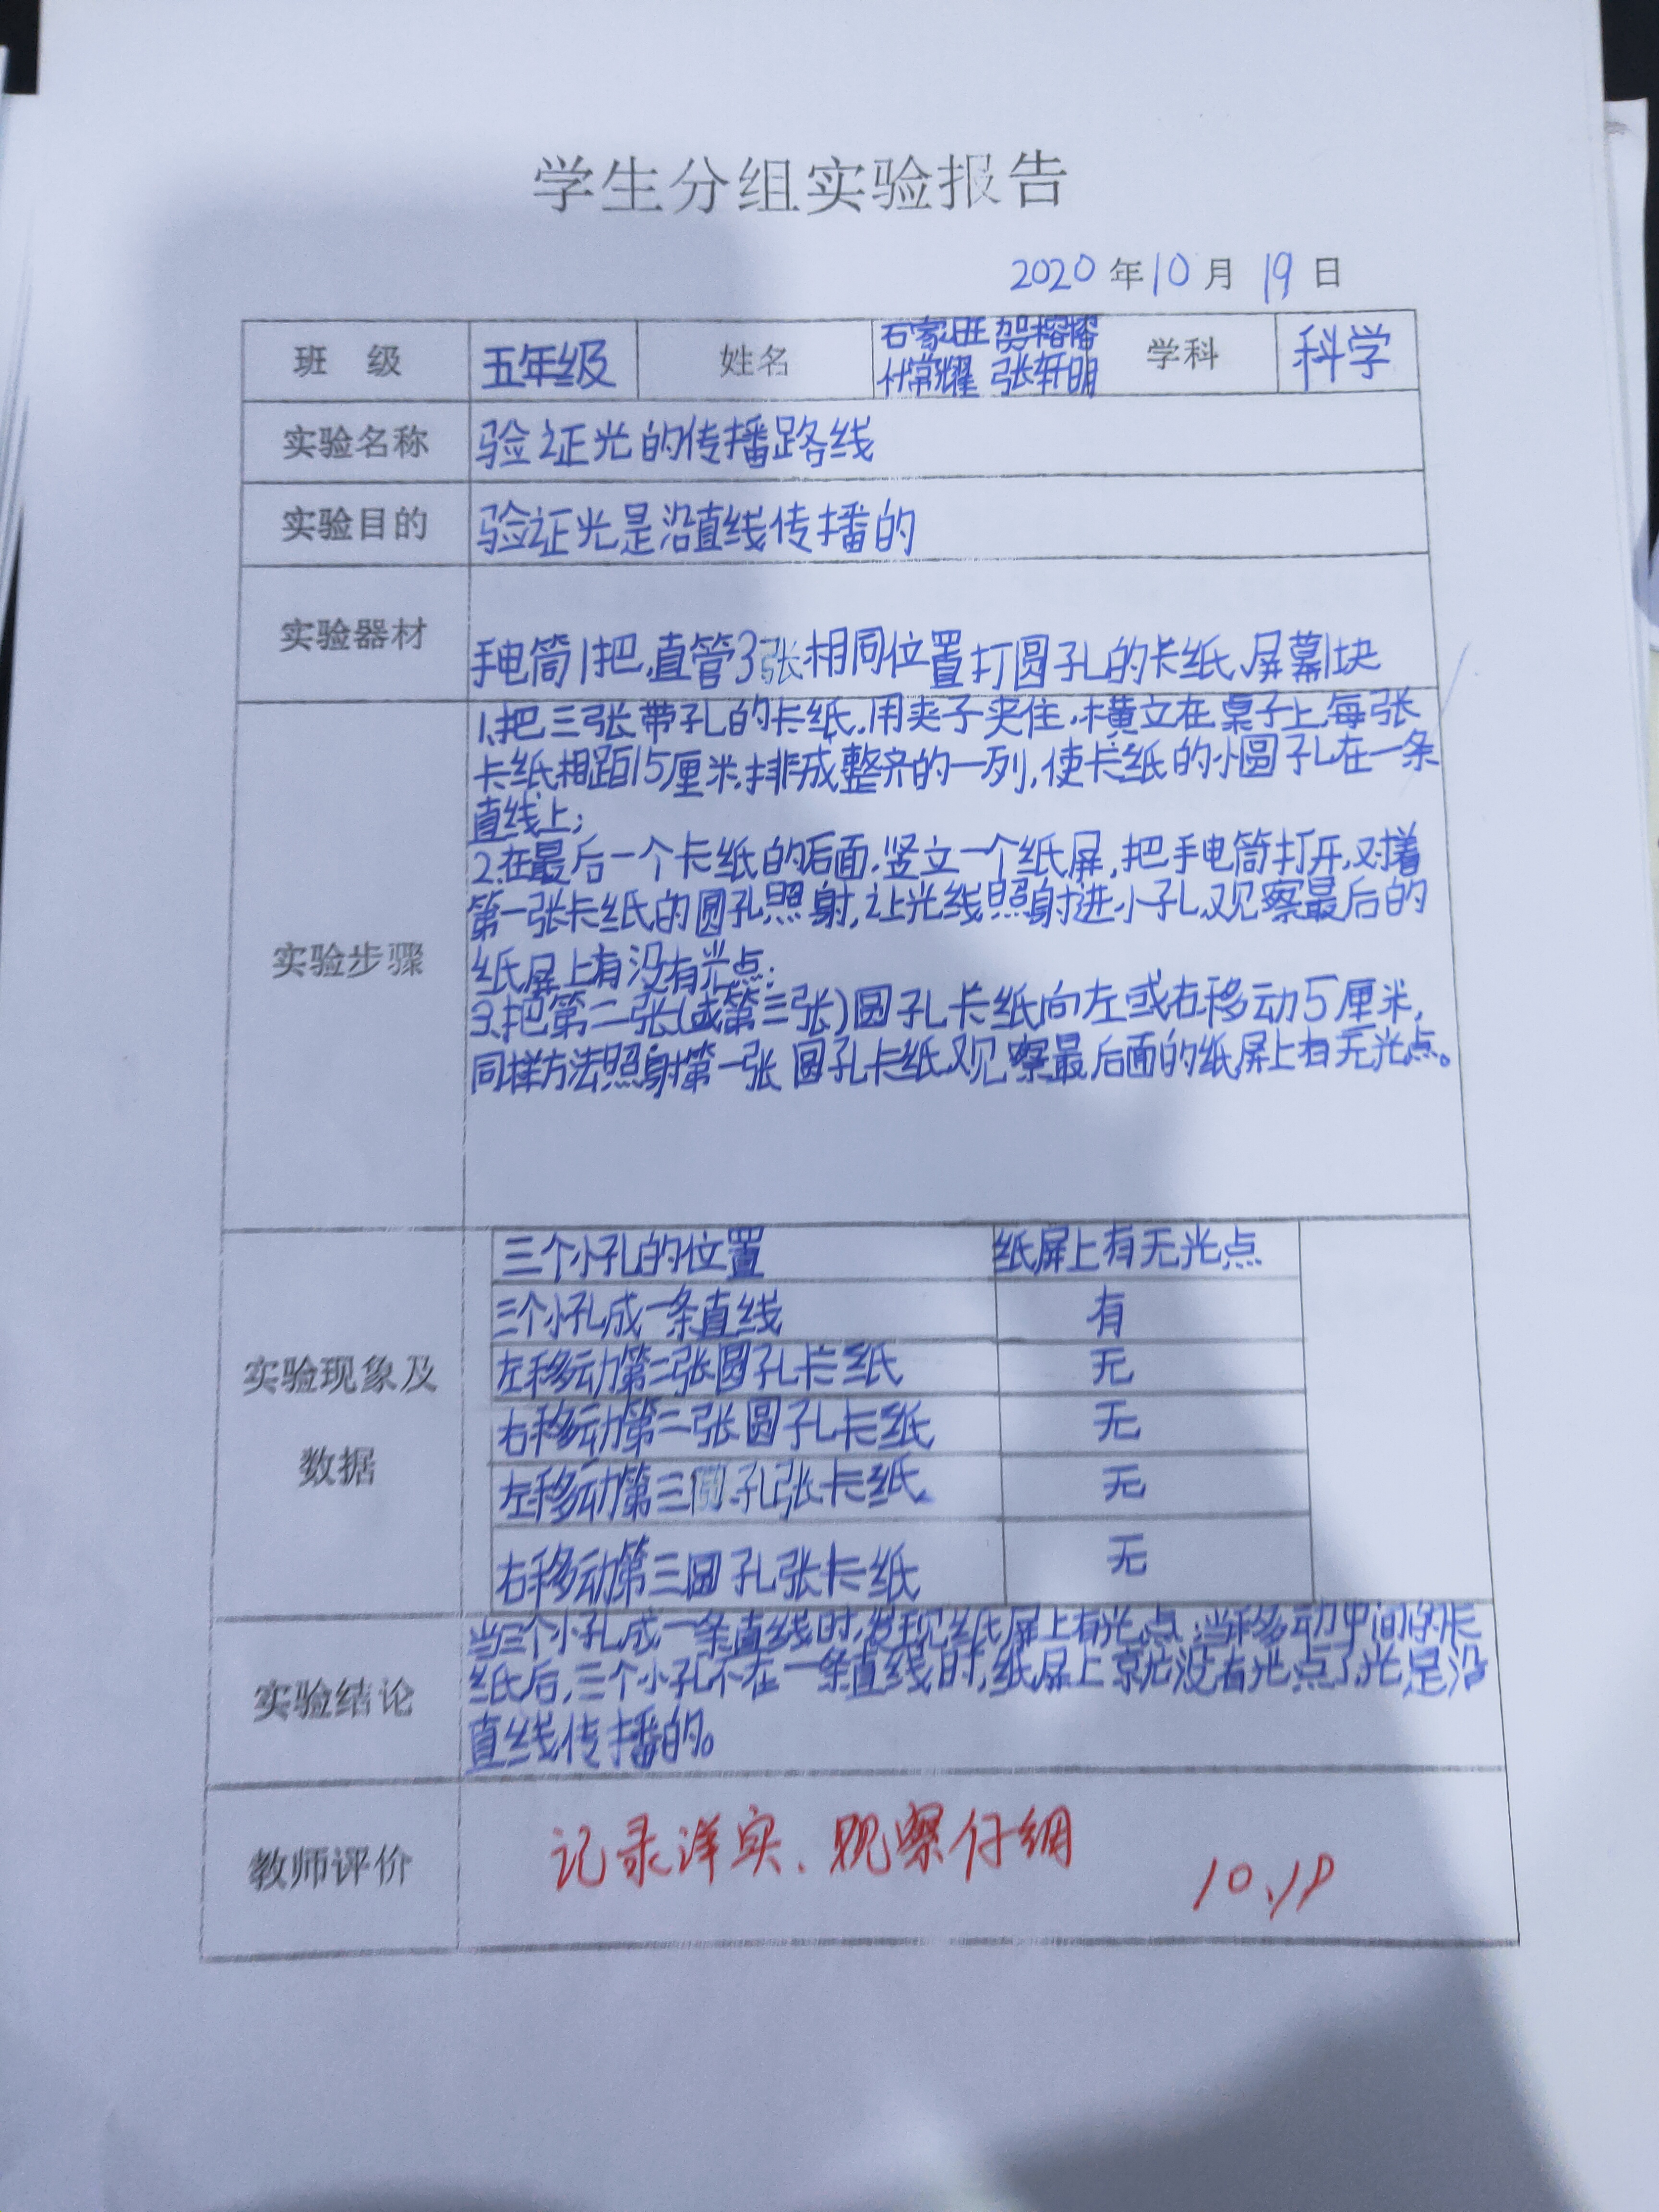 学生分组实验报告
2020年10月19日
班 级 五年级 姓名 石家旺 贺榕榕 学科 科学
代常耀 张轩明
实验名称 验证光的传播路线
实验目的 验证光是沿直线传播的
实验器材 手电筒1把、直管3张相同位置打圆孔的卡纸、屏幕1块
实验步骤
1、把三张带孔的卡纸,用夹子夹住,横立在桌子上,每张
卡纸相距15厘米,排成整齐的一列,使卡纸的小圆孔在一条
直线上;
2、在最后一个卡纸的后面,竖立一个纸屏,把手电筒打开,对着
第一张卡纸的圆孔照射,让光线照射进小孔,观察最后的
纸屏上有没有光点;
3、把第二张(或第三张)圆孔卡纸向左或右移动5厘米,
同样方法照射第一张圆孔卡纸,观察最后面的纸屏上有无光点。
实验现象及
数据
三个小孔的位置 纸屏上有无光点
三个小孔成一条直线 有
左移动第二张圆孔卡纸 无
右移动第二张圆孔卡纸 无
左移动第三圆孔张卡纸 无
右移动第三圆孔张卡纸 无
实验结论
当三个小孔成一条直线时,发现纸屏上有光点,当移动中间的卡
纸后,三个小孔不在一条直线时,纸屏上就没有光点了,光是沿
直线传播的。
教师评价 记录详实、观察仔细
10.19